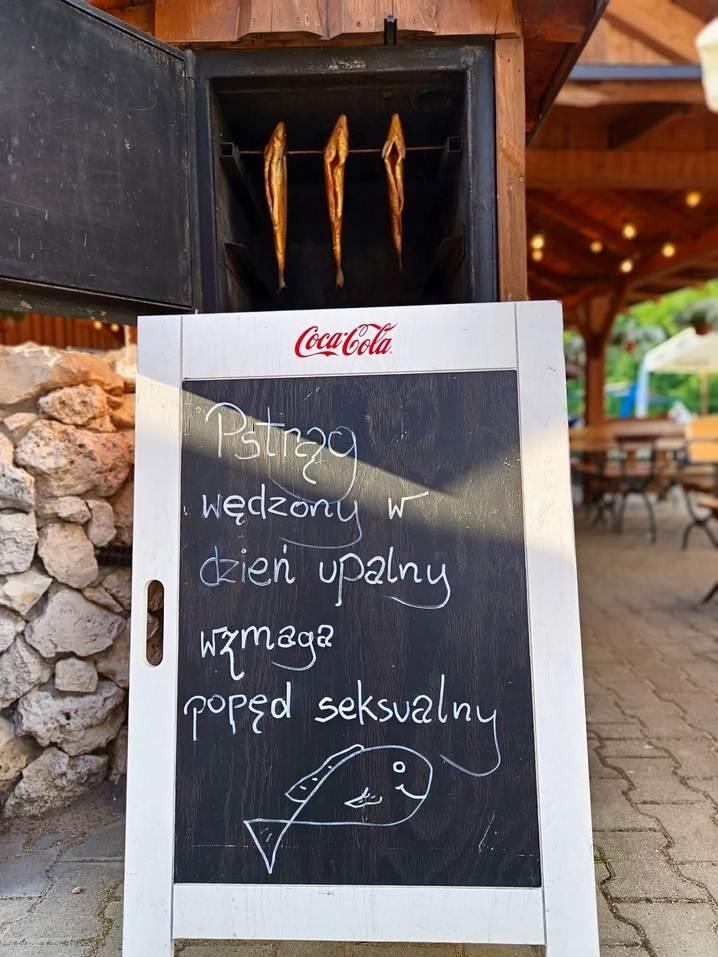 Coca-Cola
Pstrąg
wędzony w
dzień upalny
wzmaga
popęd seksualny